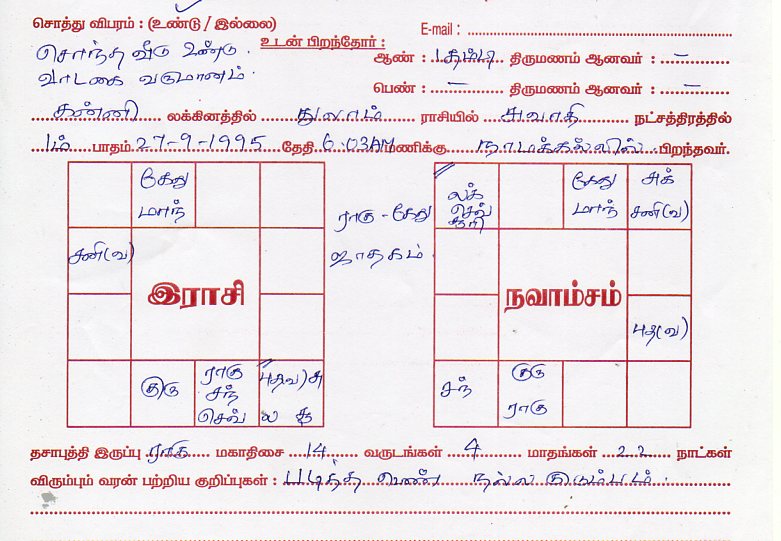 சொத்து விபரம் : (உண்டு / இல்லை)
E-mail :
சொந்த வீடு உண்டு.
உடன் பிறந்தோர் :
ஆண் : தம்பி திருமணம் ஆனவர் : –
வாடகை வருமானம்.
பெண் : – திருமணம் ஆனவர் : –
கன்னி லக்கினத்தில் துலாம் ராசியில் சுவாதி நட்சத்திரத்தில்
1ம் பாதம் 27-9-1995 தேதி 6:03AM மணிக்கு நாமக்கல்லில் பிறந்தவர்.
கேது
மாந்
லக்
செவ்
சூரி
கேது
மாந்
சுக்
சனி(வ)
ராகு - கேது
ஜாதகம்.
சனி(வ)
இராசி
நவாம்சம்
புத(வ)
குரு
ராகு
சந்
செவ்
புத(வ) சு
ல சூ
சந்
குரு
ராகு
தசாபுத்தி இருப்பு ராகு மகாதிசை 14 வருடங்கள் 4 மாதங்கள் 22 நாட்கள்
விரும்பும் வரன் பற்றிய குறிப்புகள் : படித்த பெண் நல்ல குடும்பம்.